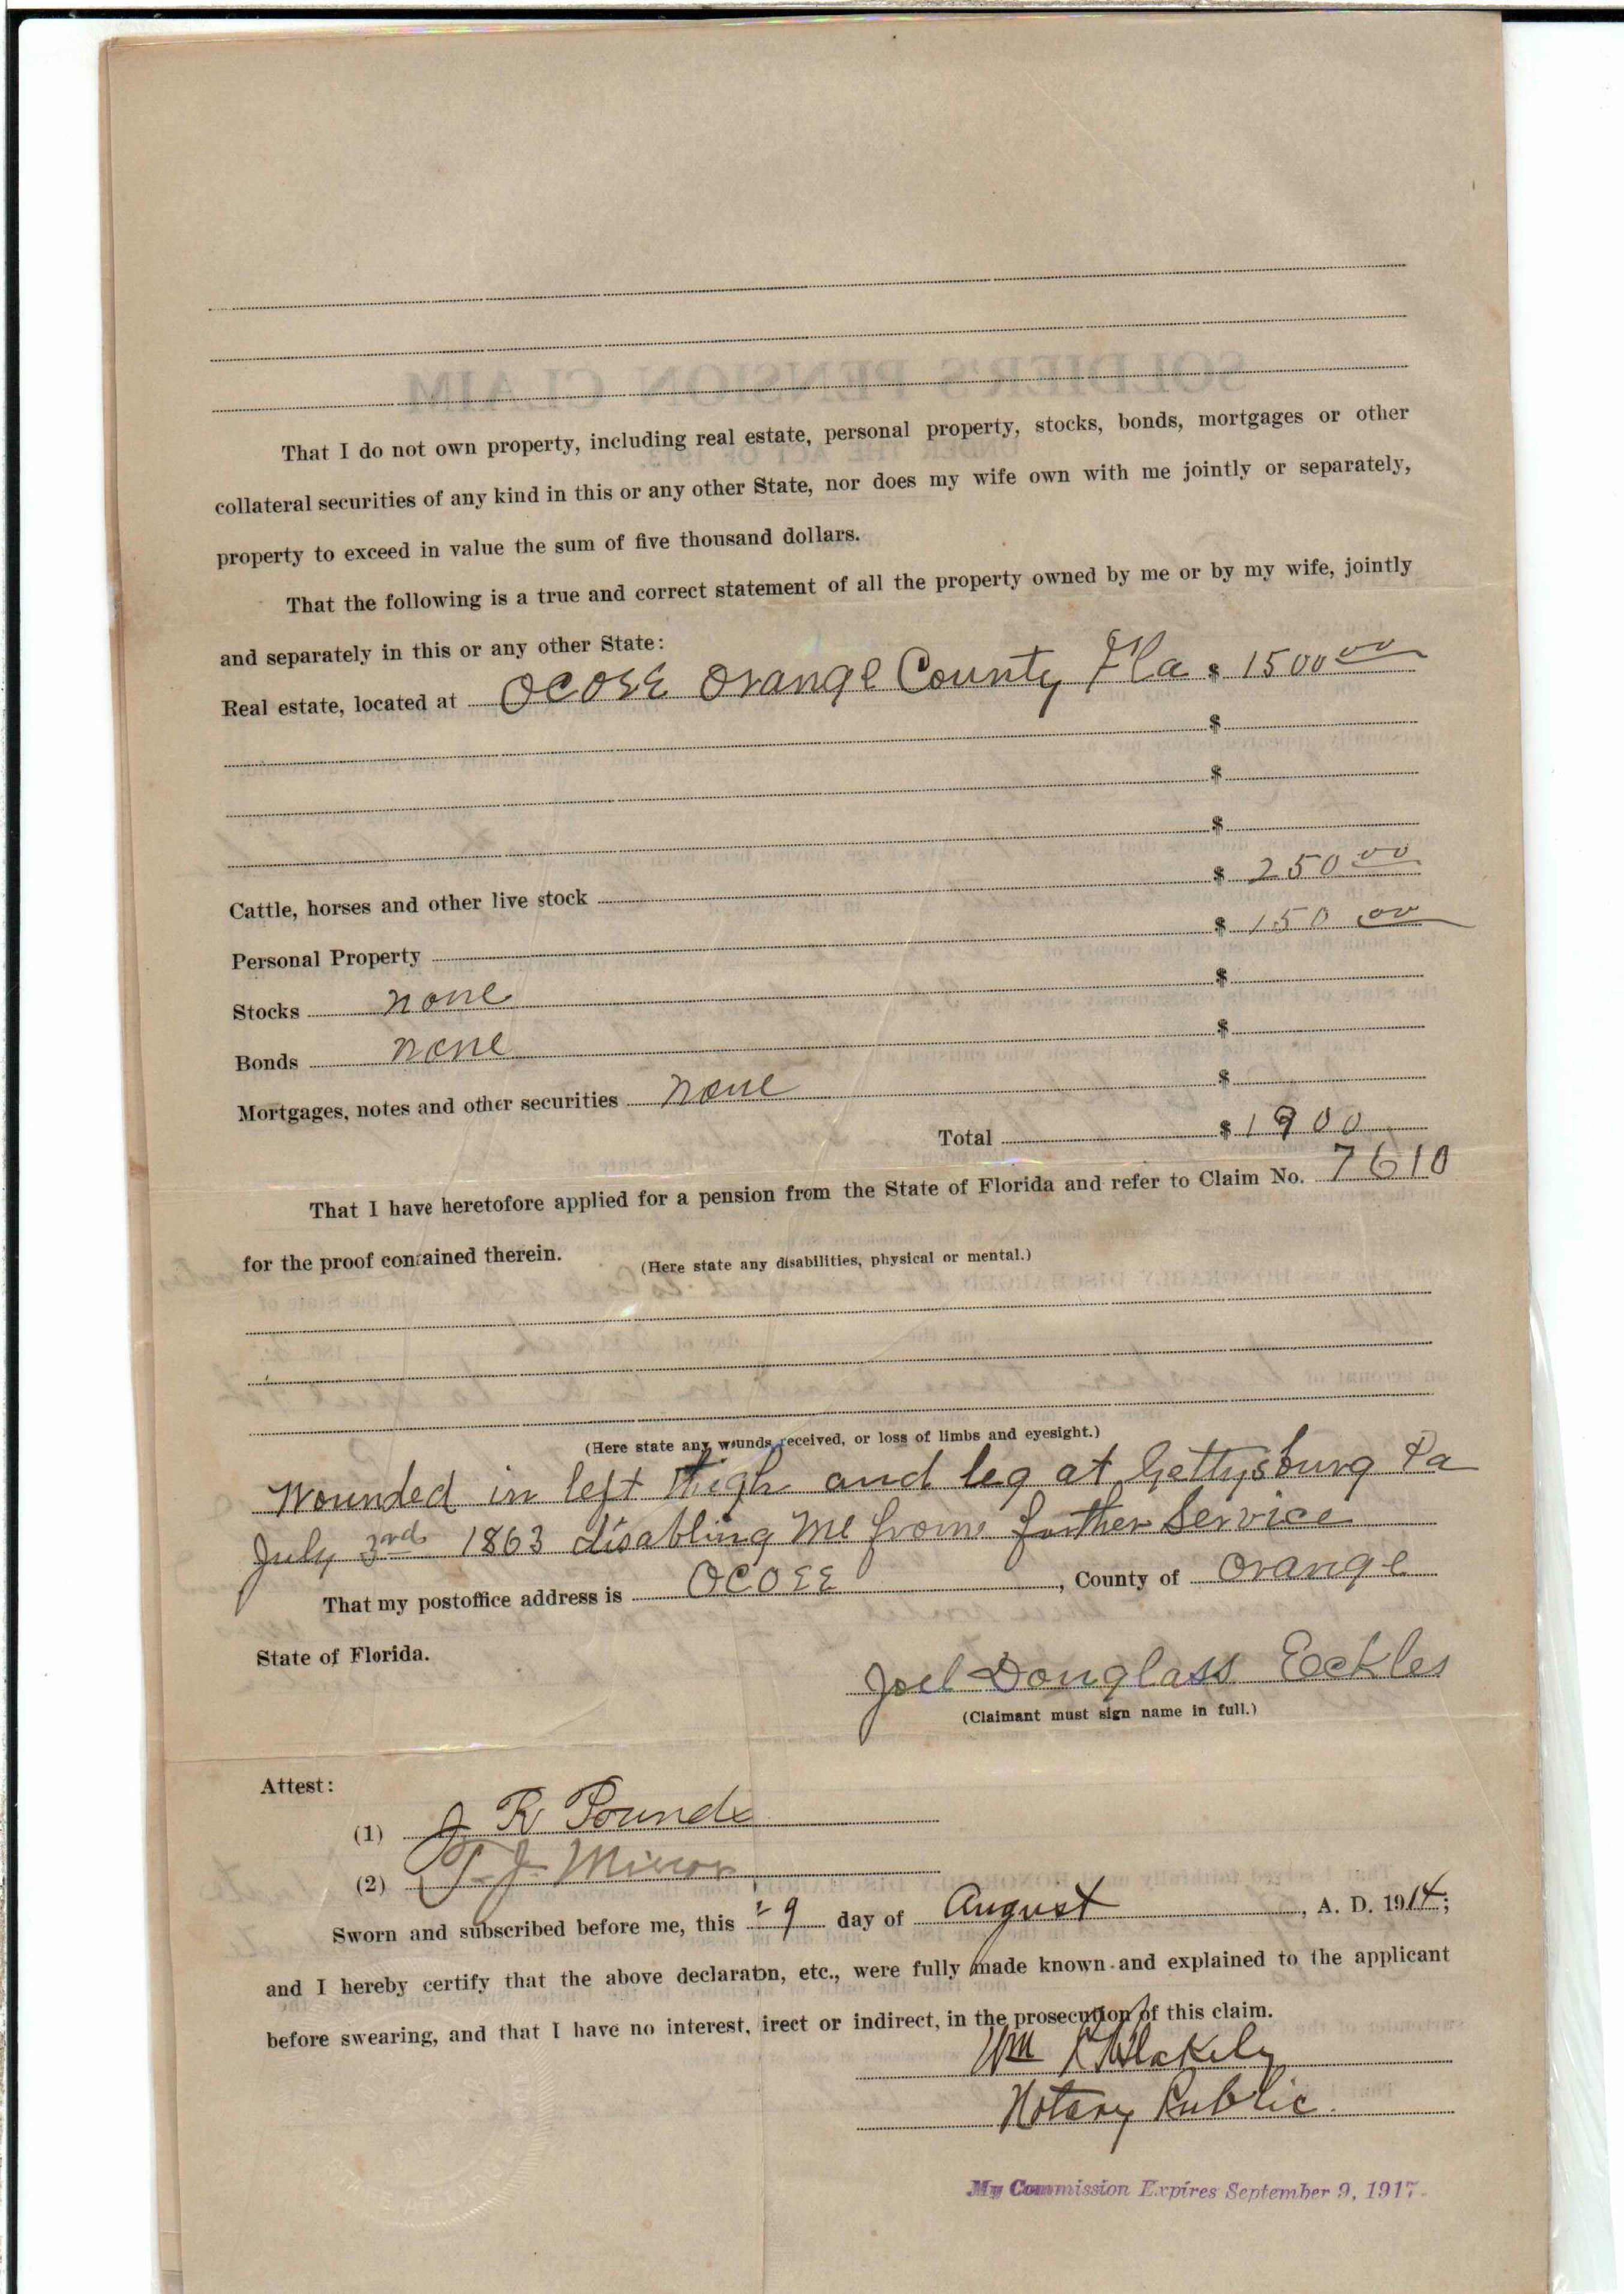 That I do not own property, including real estate, personal property, stocks, bonds, mortgages or other
collateral securities of any kind in this or any other State, nor does my wife own with me jointly or separately,
property to exceed in value the sum of five thousand dollars.
That the following is a true and correct statement of all the property owned by me or by my wife, jointly
and separately in this or any other State:
Real estate, located at OCOEE Orange County Fla $ 1500 00
$
$
$
Cattle, horses and other live stock $ 250 00
Personal Property $ 150 00
Stocks none $
Bonds none $
Mortgages, notes and other securities none $
Total $ 1900
That I have heretofore applied for a pension from the State of Florida and refer to Claim No. 7610
for the proof contained therein.
(Here state any disabilities, physical or mental.)
(Here state any wounds received, or loss of limbs and eyesight.)
Wounded in left thigh and leg at Gettysburg Pa
July 3rd 1863 disabling me from further Service
That my postoffice address is OCOEE, County of Orange
State of Florida.
Joel Douglass Eckles
(Claimant must sign name in full.)
Attest:
(1) J R Pounds
(2) T. J. Minor
Sworn and subscribed before me, this 29 day of August, A. D. 1914;
and I hereby certify that the above declaraton, etc., were fully made known and explained to the applicant
before swearing, and that I have no interest, irect or indirect, in the prosecution of this claim.
Wm Blakely
Notary Public.
My Commission Expires September 9, 1917.